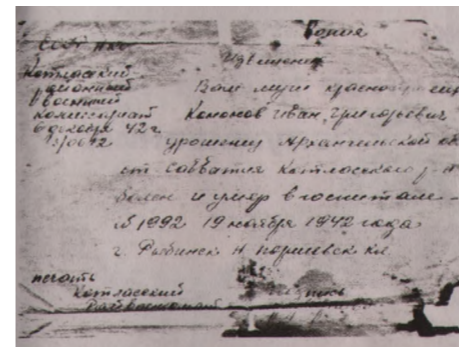 Копия
СССР НКО
Извещение
Котласский
районный
военный
комиссариат
6 декабря 42 г.
Ваш муж красноармеец
Кононов Иван Григорьевич
уроженец Архангельской об
ст. Савватия Котласского р-
болен и умер в госпитале
№ 1992 19 ноября 1942 года
г. Рыбинск
печать
Котласский
Райвоенкомат